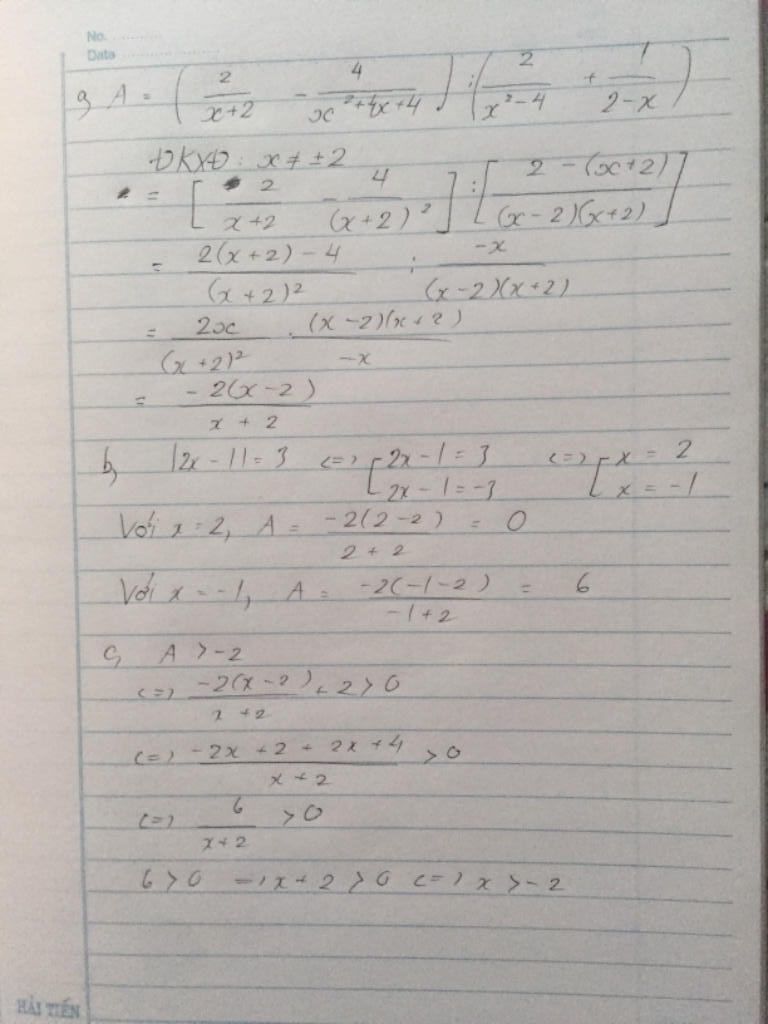 No.
Date
a, A = ( 2/(x+2) - 4/(x²+4x+4) ] : ( 2/(x²-4) + 1/(2-x) )
ĐKXĐ: x ≠ ±2
= [ 2/(x+2) - 4/(x+2)² ] : [ (2-(x+2))/((x-2)(x+2)) ]
= (2(x+2)-4)/((x+2)²) : (-x)/((x-2)(x+2))
= 2x/((x+2)²) . ((x-2)(x+2))/(-x)
= (-2(x-2))/(x+2)
b, |2x-1|=3 <=> [ 2x-1=3 <=> [ x = 2
2x-1=-3 x = -1
Với x=2, A = (-2(2-2))/(2+2) = 0
Với x=-1, A = (-2(-1-2))/(-1+2) = 6
c, A > -2
<=> (-2(x-2))/(x+2) + 2 > 0
<=> (-2x+2+2x+4)/(x+2) > 0
<=> 6/(x+2) > 0
6 > 0 => x+2 > 0 <=> x > -2
HẢI TIẾN